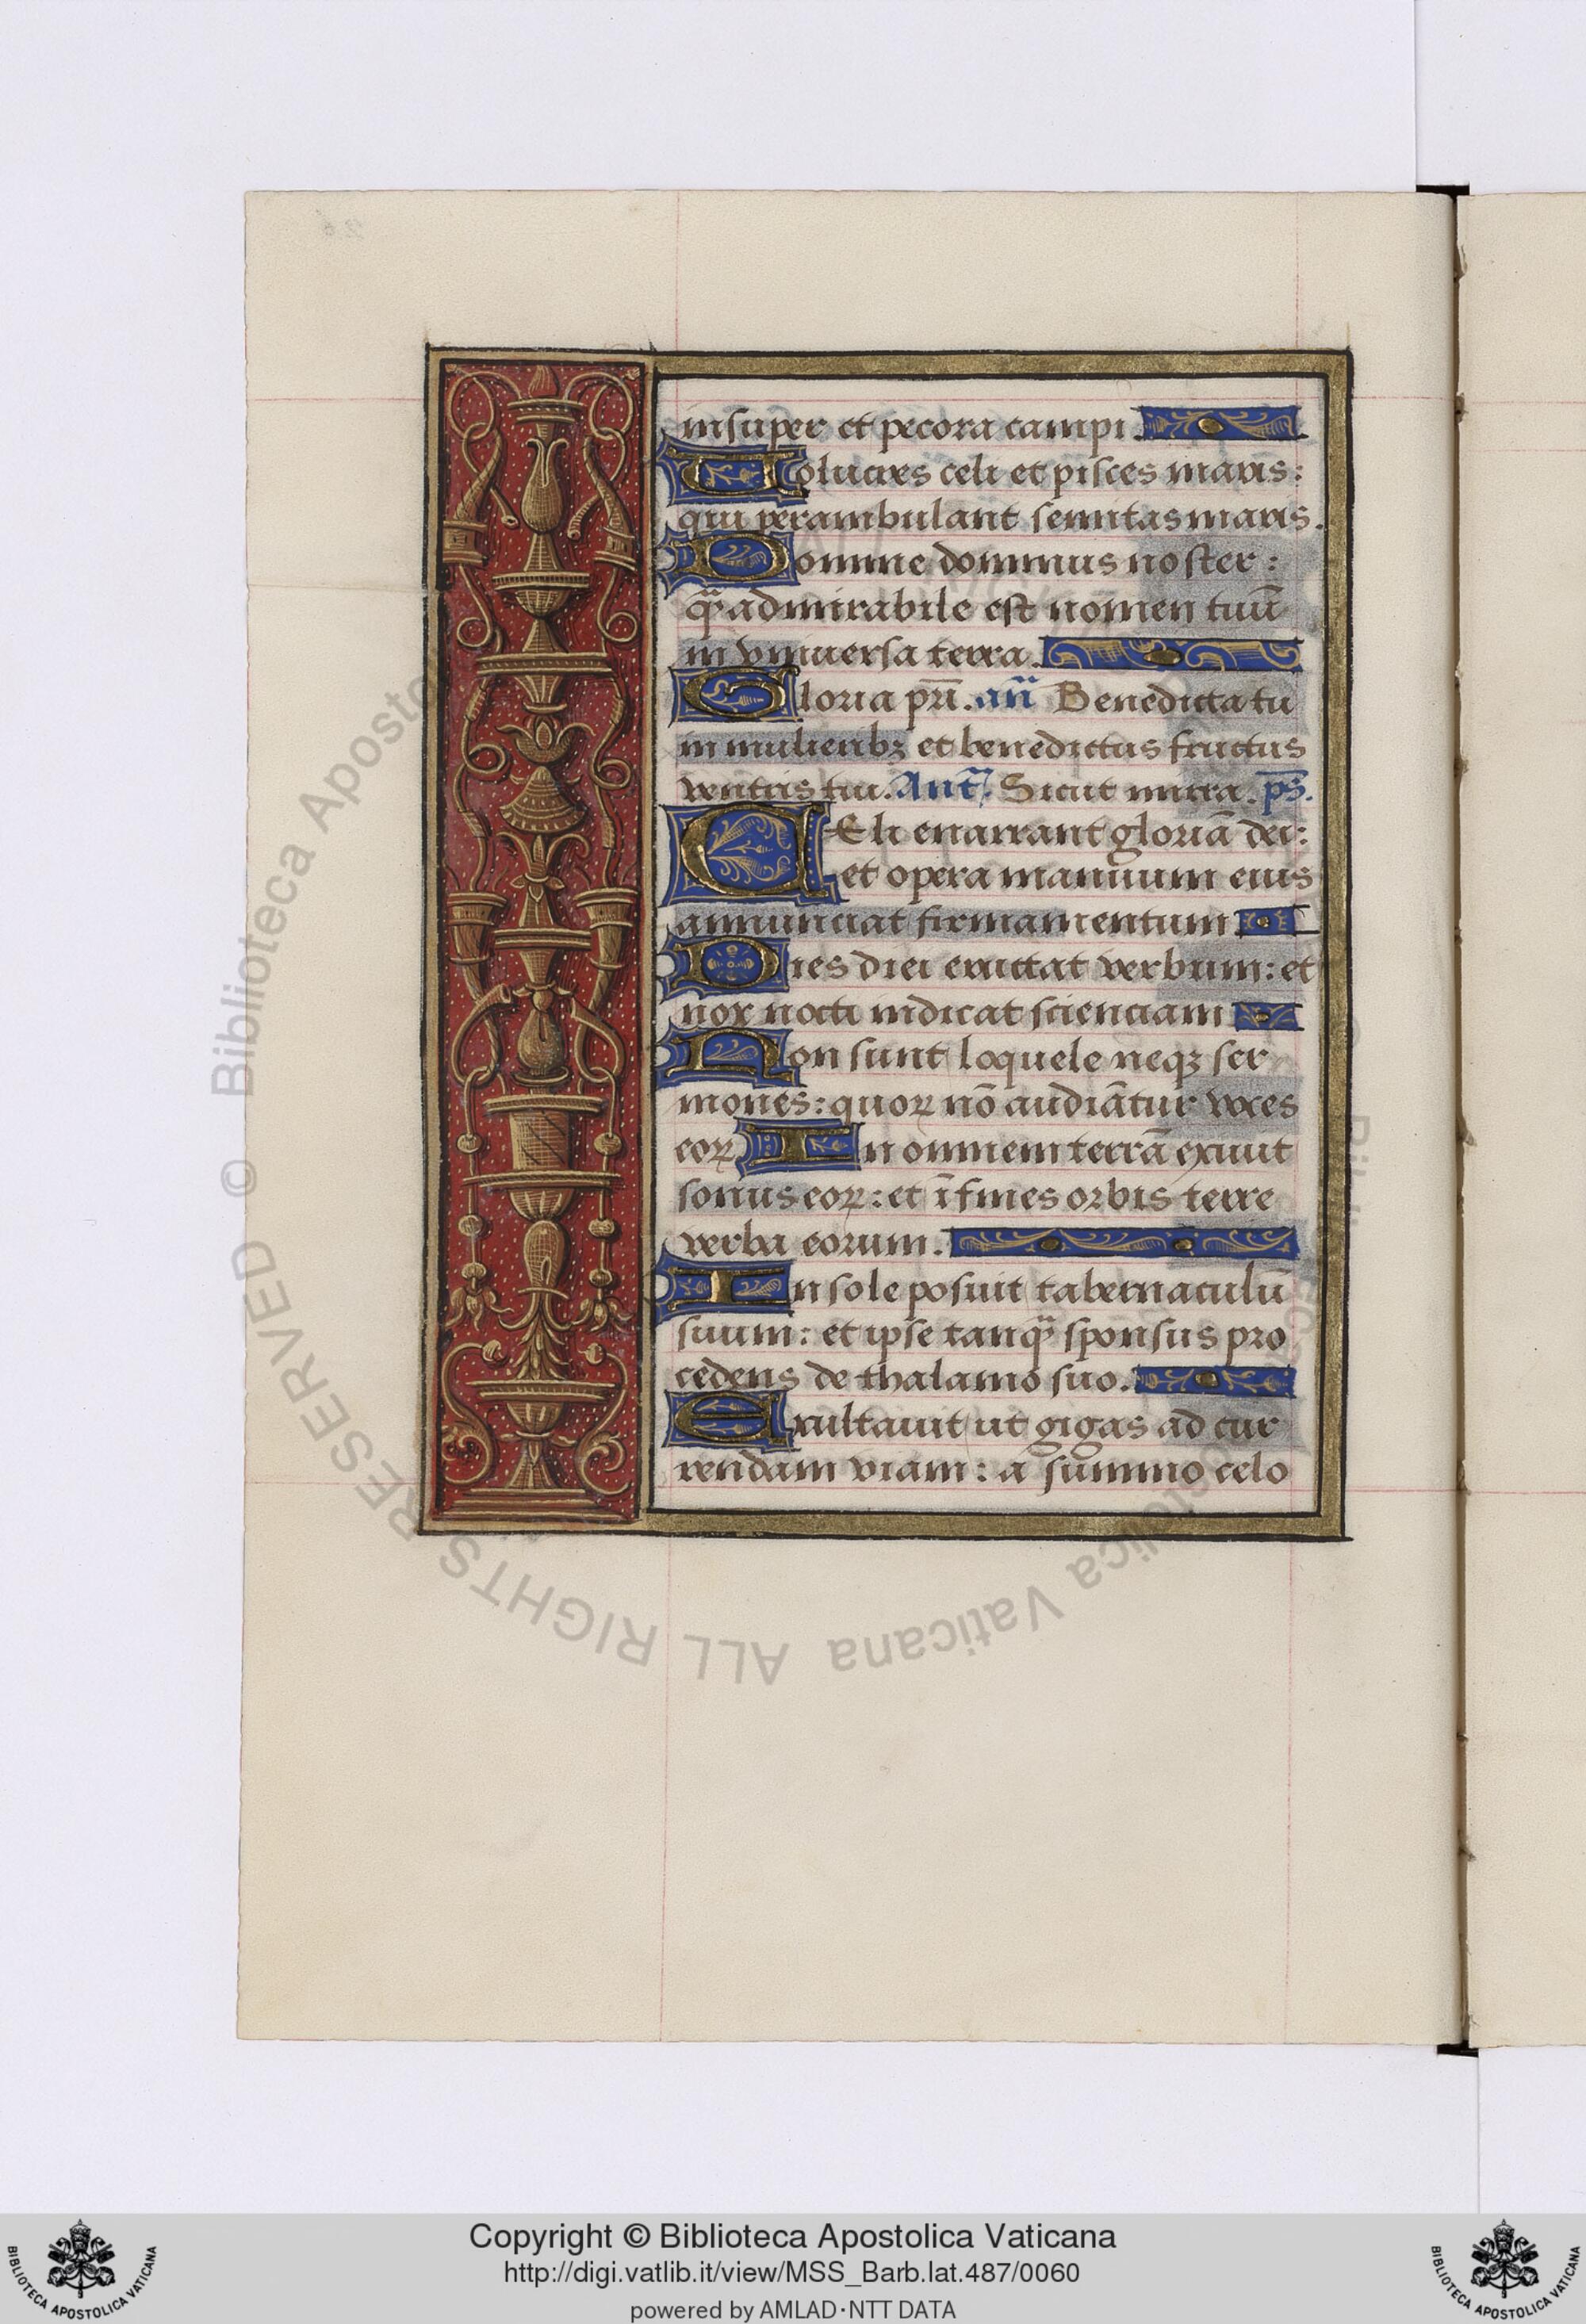 insuper et pecora campi.
Uolucres celi et pisces maris:
qui perambulant semitas maris.
Domine dominus noster:
q̄ admirabile est nomen tuū
in vniuersa terra.
Gloria pr̄i. añ Benedicta tu
in mulieribꝫ et benedictus fructus
ventris tui. Ant̄. Sicut mirra. ps̄.
CEli enarrant gloriā dei:
et opera manuum eius
annunciat firmamentum
Dies diei eructat verbum: et
nox nocti indicat scienciam
Non sunt loquele neqꝫ ser
mones: quoꝝ nō audiātur voces
eoꝝ In omnem terrā exiuit
sonus eoꝝ: et ī fines orbis terre
verba eorum.
In sole posuit tabernaculū
suum: et ipse tanq̄ sponsus pro
cedens de thalamo suo.
Exultauit ut gigas ad cur
rendam viam: a summo celo
Biblioteca Apostolica Vaticana ALL RIGHTS RESERVED ©
Copyright © Biblioteca Apostolica Vaticana
http://digi.vatlib.it/view/MSS_Barb.lat.487/0060
powered by AMLAD·NTT DATA
BIBLIOTECA APOSTOLICA VATICANA
BIBLIOTECA APOSTOLICA VATICANA